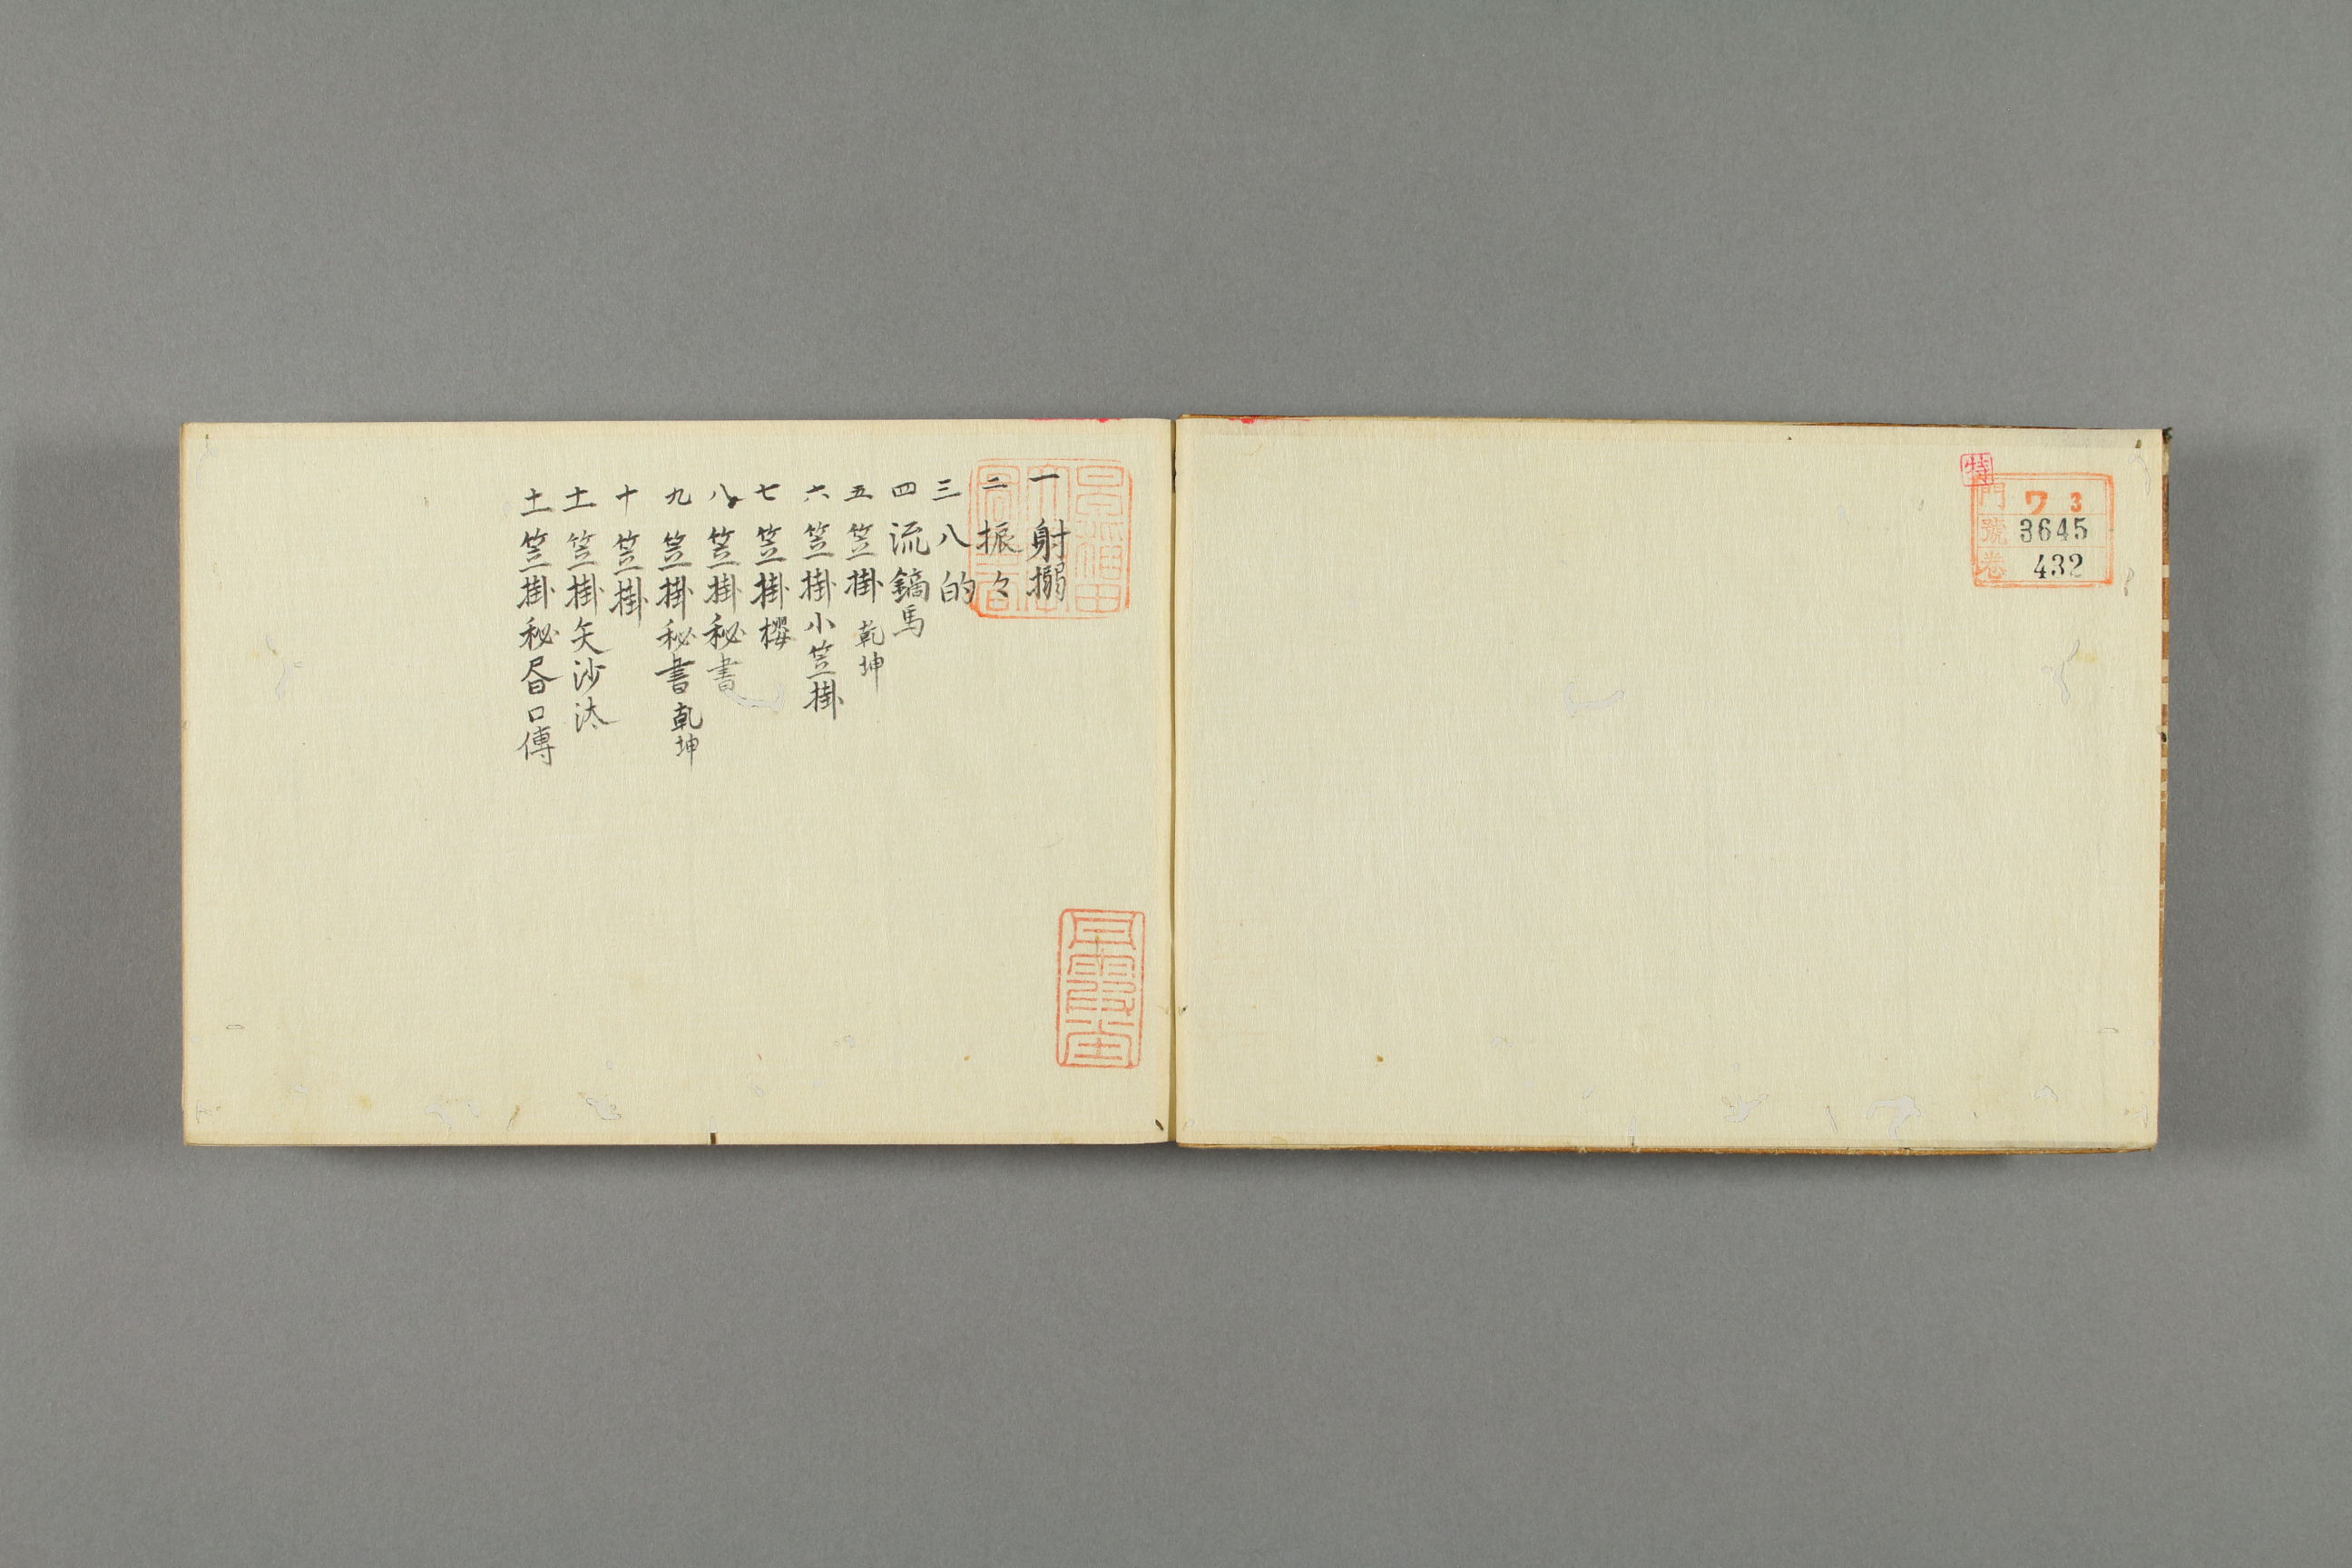 特
門 ワ 3
號 3645
卷 432
一 射搦
二 振々
三 八的
四 流鏑馬
五 笠掛 乾坤
六 笠掛小笠掛
七 笠掛櫻
八 笠掛秘書
九 笠掛秘書乾坤
十 笠掛
十一 笠掛矢沙汰
十二 笠掛秘書口傳